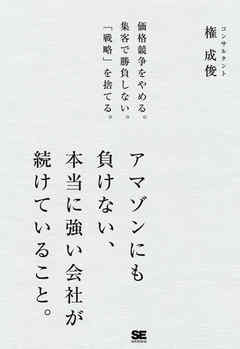 コンサルタント
権 成俊
価格競争をやめる。
集客で勝負しない。
「戦略」を捨てる。
アマゾンにも
負けない、
本当に強い会社が
続けていること。
SE
SHOEISHA